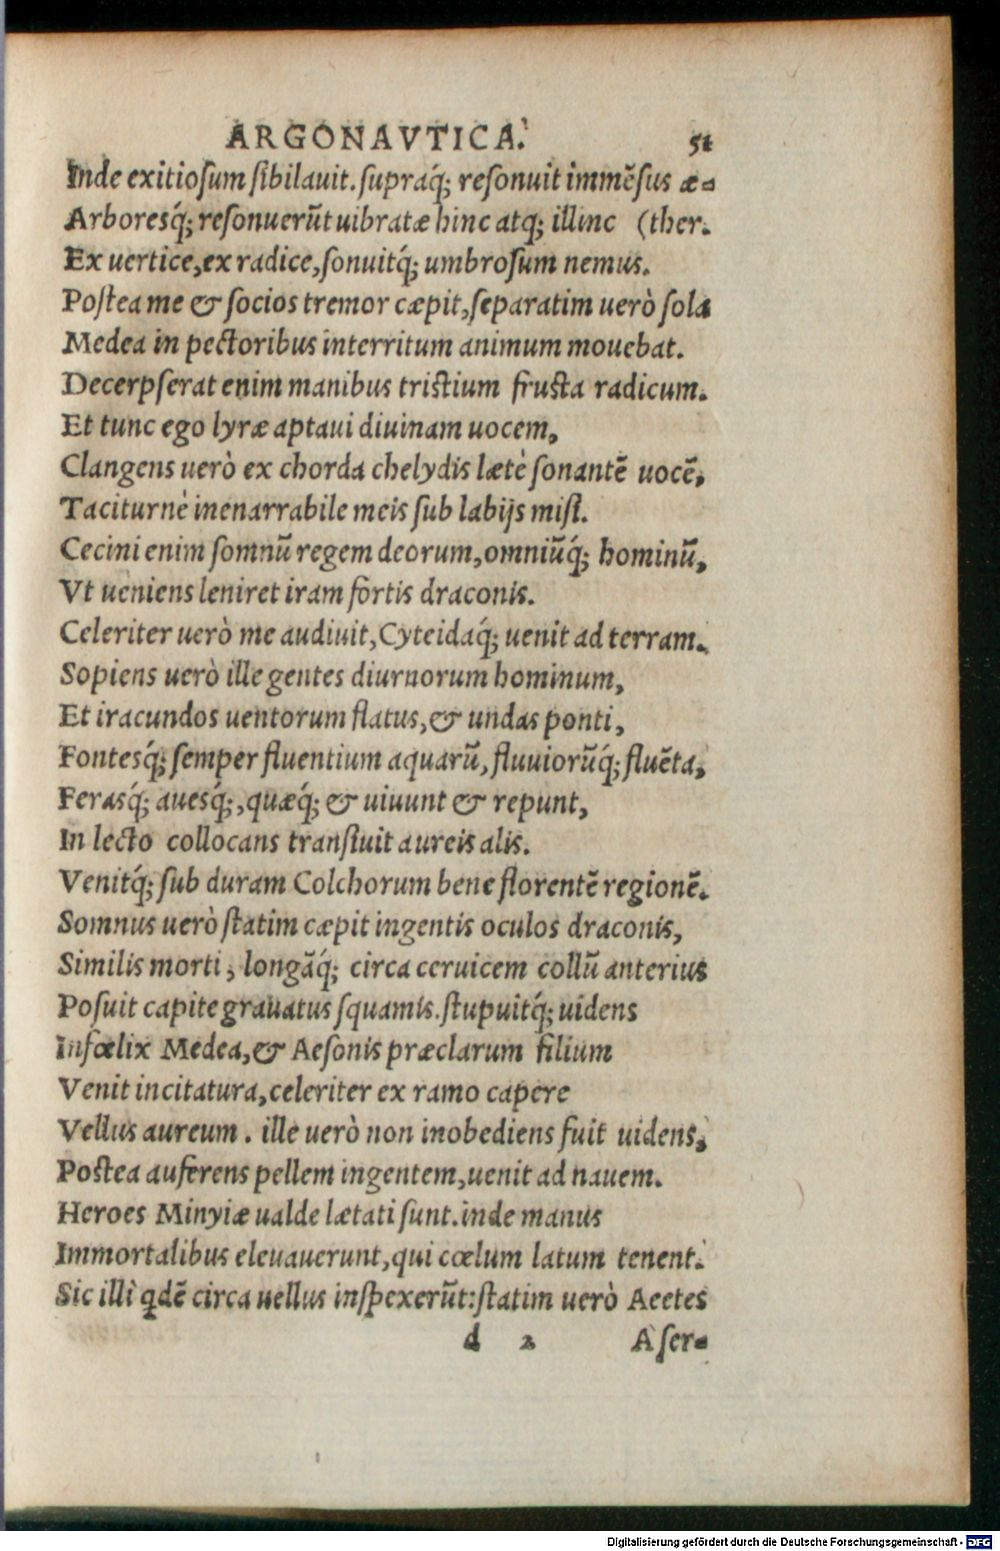 ARGONAVTICA. 51
Inde exitioſum ſibilauit. ſupraq́; reſonuit immēſus æ-
Arboresq́; reſonuerūt uibratæ hinc atq; illinc (ther.
Ex uertice, ex radice, ſonuitq́; umbroſum nemus.
Poſtea me & ſocios tremor cæpit, ſeparatim uerò ſola
Medea in pectoribus interritum animum mouebat.
Decerpſerat enim manibus triſtium fruſta radicum.
Et tunc ego lyræ aptaui diuinam uocem,
Clangens uerò ex chorda chelydis lætè ſonantē uocē,
Taciturnè inenarrabile meis ſub labijs miſi.
Cecini enim ſomnū regem deorum, omniūq́; hominū,
Vt ueniens leniret iram fortis draconis.
Celeriter uerò me audiuit, Cyteidaq́; uenit ad terram.
Sopiens uerò ille gentes diurnorum hominum,
Et iracundos uentorum flatus, & undas ponti,
Fontesq́; ſemper fluentium aquarū, fluuiorūq́; fluēta,
Ferasq́; auesq́;, quæq́; & uiuunt & repunt,
In lecto collocans tranſiuit aureis alis.
Venitq́; ſub duram Colchorum bene florentē regionē.
Somnus uerò ſtatim cæpit ingentis oculos draconis,
Similis morti, longāq́; circa ceruicem collū anterius
Poſuit capite grauatus ſquamis. ſtupuitq́; uidens
Infœlix Medea, & Aeſonis præclarum filium
Venit incitatura, celeriter ex ramo capere
Vellus aureum. ille uerò non inobediens fuit uidens,
Poſtea auferens pellem ingentem, uenit ad nauem.
Heroes Minyiæ ualde lætati ſunt. inde manus
Immortalibus eleuauerunt, qui cœlum latum tenent.
Sic illi qdē circa uellus inſpexerūt: ſtatim uerò Aeetes
d 2 A ſer-
Digitalisierung gefördert durch die Deutsche Forschungsgemeinschaft - DFG